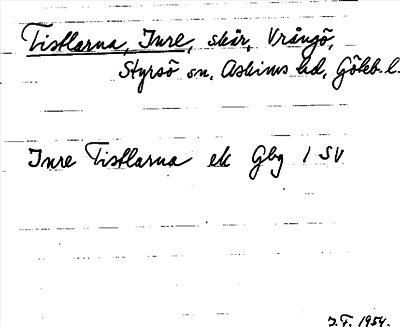 Tistlarna, Inre, skär, Vrångö,
Styrsö sn, Askims hd, Göteb. l.
Inre Tistlarna ek Gbg 1 SV
J.F. 1954.